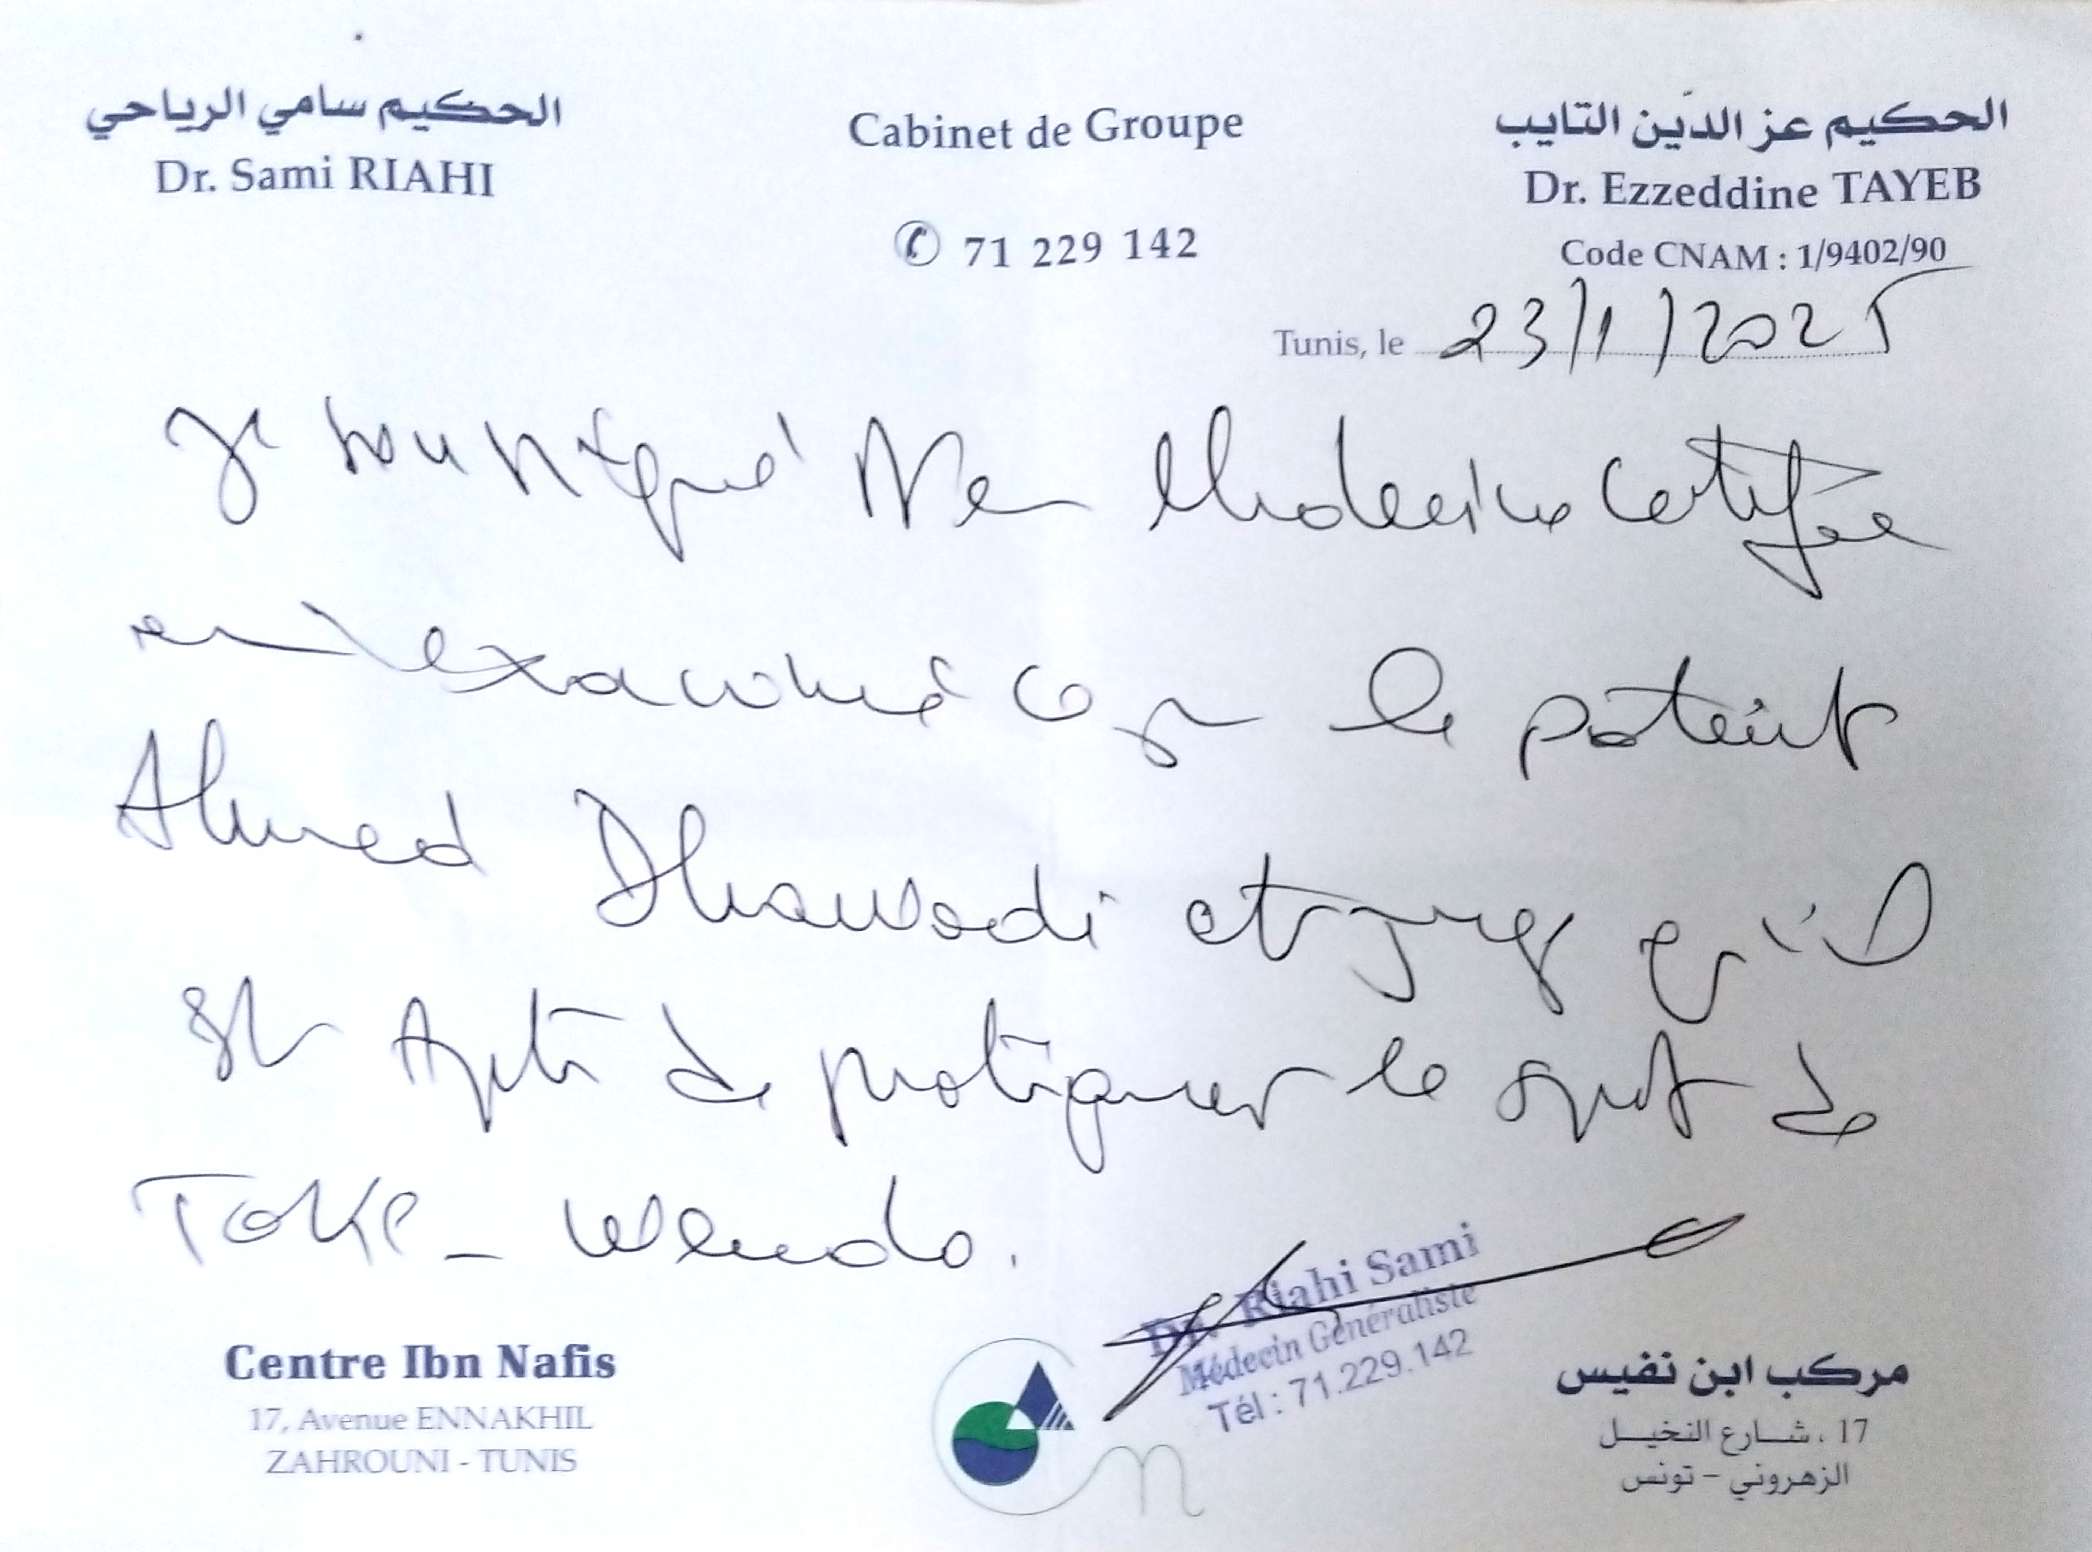 الحكيم سامي الرياحي
Dr. Sami RIAHI
Cabinet de Groupe
✆ 71 229 142
الحكيم عز الدّين التايب
Dr. Ezzeddine TAYEB
Code CNAM : 1/9402/90
Tunis, le 23/1/2025
Je soussigné Médecin certifie
examiné le patient
Ahmed Dhawadi et qu'il
est Apte de pratiquer le sport de
TaKe_
Dr. Riahi Sami
Médecin Généraliste
Tél : 71.229.142
Centre Ibn Nafis
17, Avenue ENNAKHIL
ZAHROUNI - TUNIS
مركب ابن نفيس
17 ، شارع النخيل
الزهروني - تونس